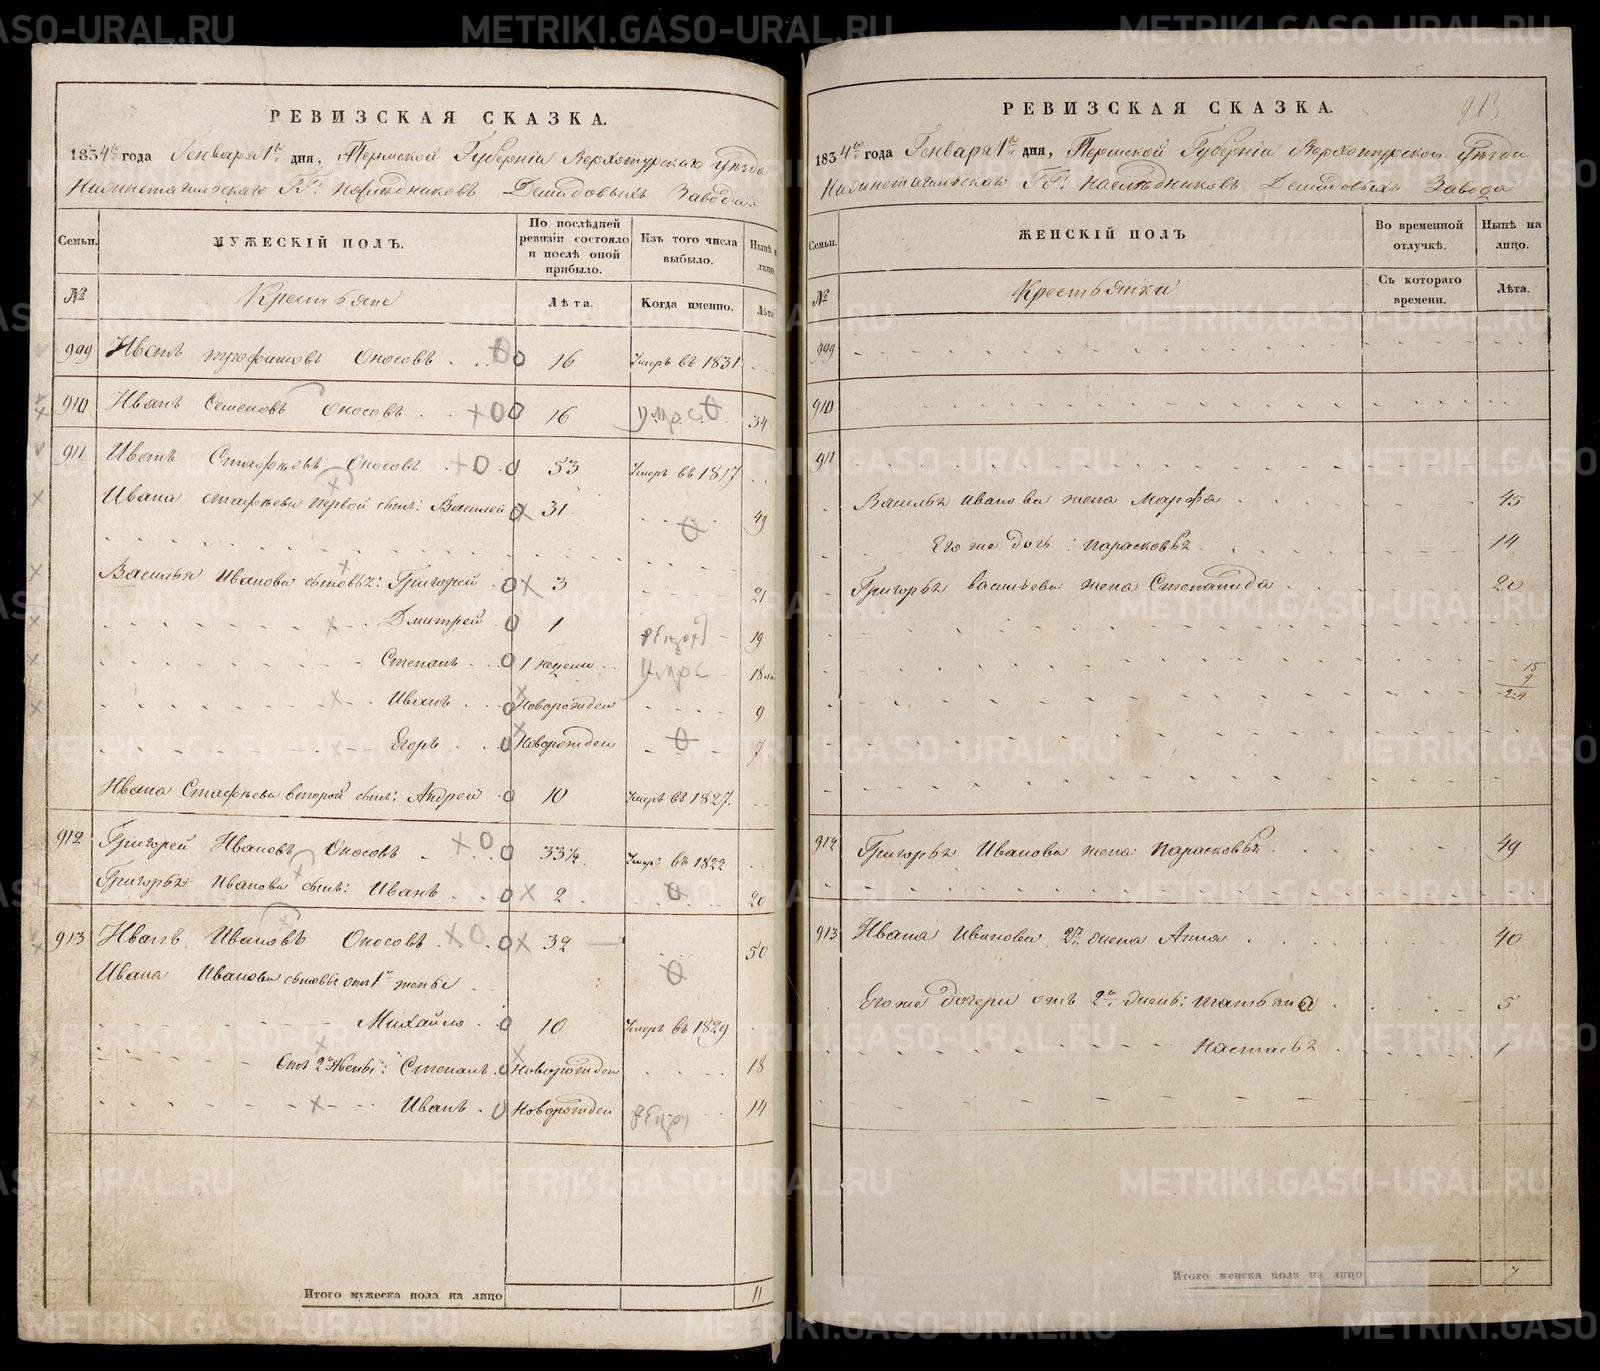 РЕВИЗСКАЯ СКАЗКА.
1834го года Генваря 1го дня, Пермской Губерніи Верхотурскаго уѣзда
Нижнетагильскаго ГГ: наслѣдниковъ Демидовыхъ Завода
Семьи. МУЖЕСКІЙ ПОЛЪ. По послѣдней ревизіи состояло и послѣ оной прибыло. Изъ того числа выбыло. Нынѣ на лицо.
№ Крестьяне Лѣта. Когда именно. Лѣта
909 Иванъ Трофимовъ Оносовъ 16 Умеръ въ 1831
910 Иванъ Семеновъ Оносовъ 16 34
911 Иванъ Стафѣевъ Оносовъ 53 Умеръ въ 1817
Ивана Стафѣева первой сынъ: Василей 31 49
Василья Иванова сыновья: Григорей 3 21
Дмитрей 1 19
Степанъ 1 недели 18
Иванъ Новорожден 9
Егоръ Новорожден 7
Ивана Стафѣева второй сынъ: Андрей 10 Умеръ въ 1827.
912 Григорей Ивановъ Оносовъ 33½ Умеръ въ 1822
Григорья Иванова сынъ: Иванъ 2 20
913 Иванъ Ивановъ Оносовъ 32 50
Ивана Иванова сыновья отъ 1й жены
Михайло 10 Умеръ въ 1829
Отъ 2й жены: Степанъ Новорожден 18
Иванъ Новорожден 14
Итого мужеска пола на лицо 11
РЕВИЗСКАЯ СКАЗКА. 913
1834го года Генваря 1го дня, Пермской Губерніи Верхотурскаго уѣзда
Нижнетагильскаго ГГ: наслѣдниковъ Демидовыхъ Завода
Семьи. ЖЕНСКІЙ ПОЛЪ Во временной отлучкѣ. Нынѣ на лицо.
№ Крестьянки Съ котораго времени. Лѣта.
909
910
911
Василья Иванова жена Марфа 45
Его же дочь: Парасковья 14
Григорья Васильева жена Степанида 20
15
9
24
912 Григорья Иванова жена Парасковья 49
913 Ивана Иванова 2я жена Анна 40
Его же дочери отъ 2й жены: Татьяна 5
Настасья 1
Итого женска пола на лицо 7
METRIKI.GASO-URAL.RU